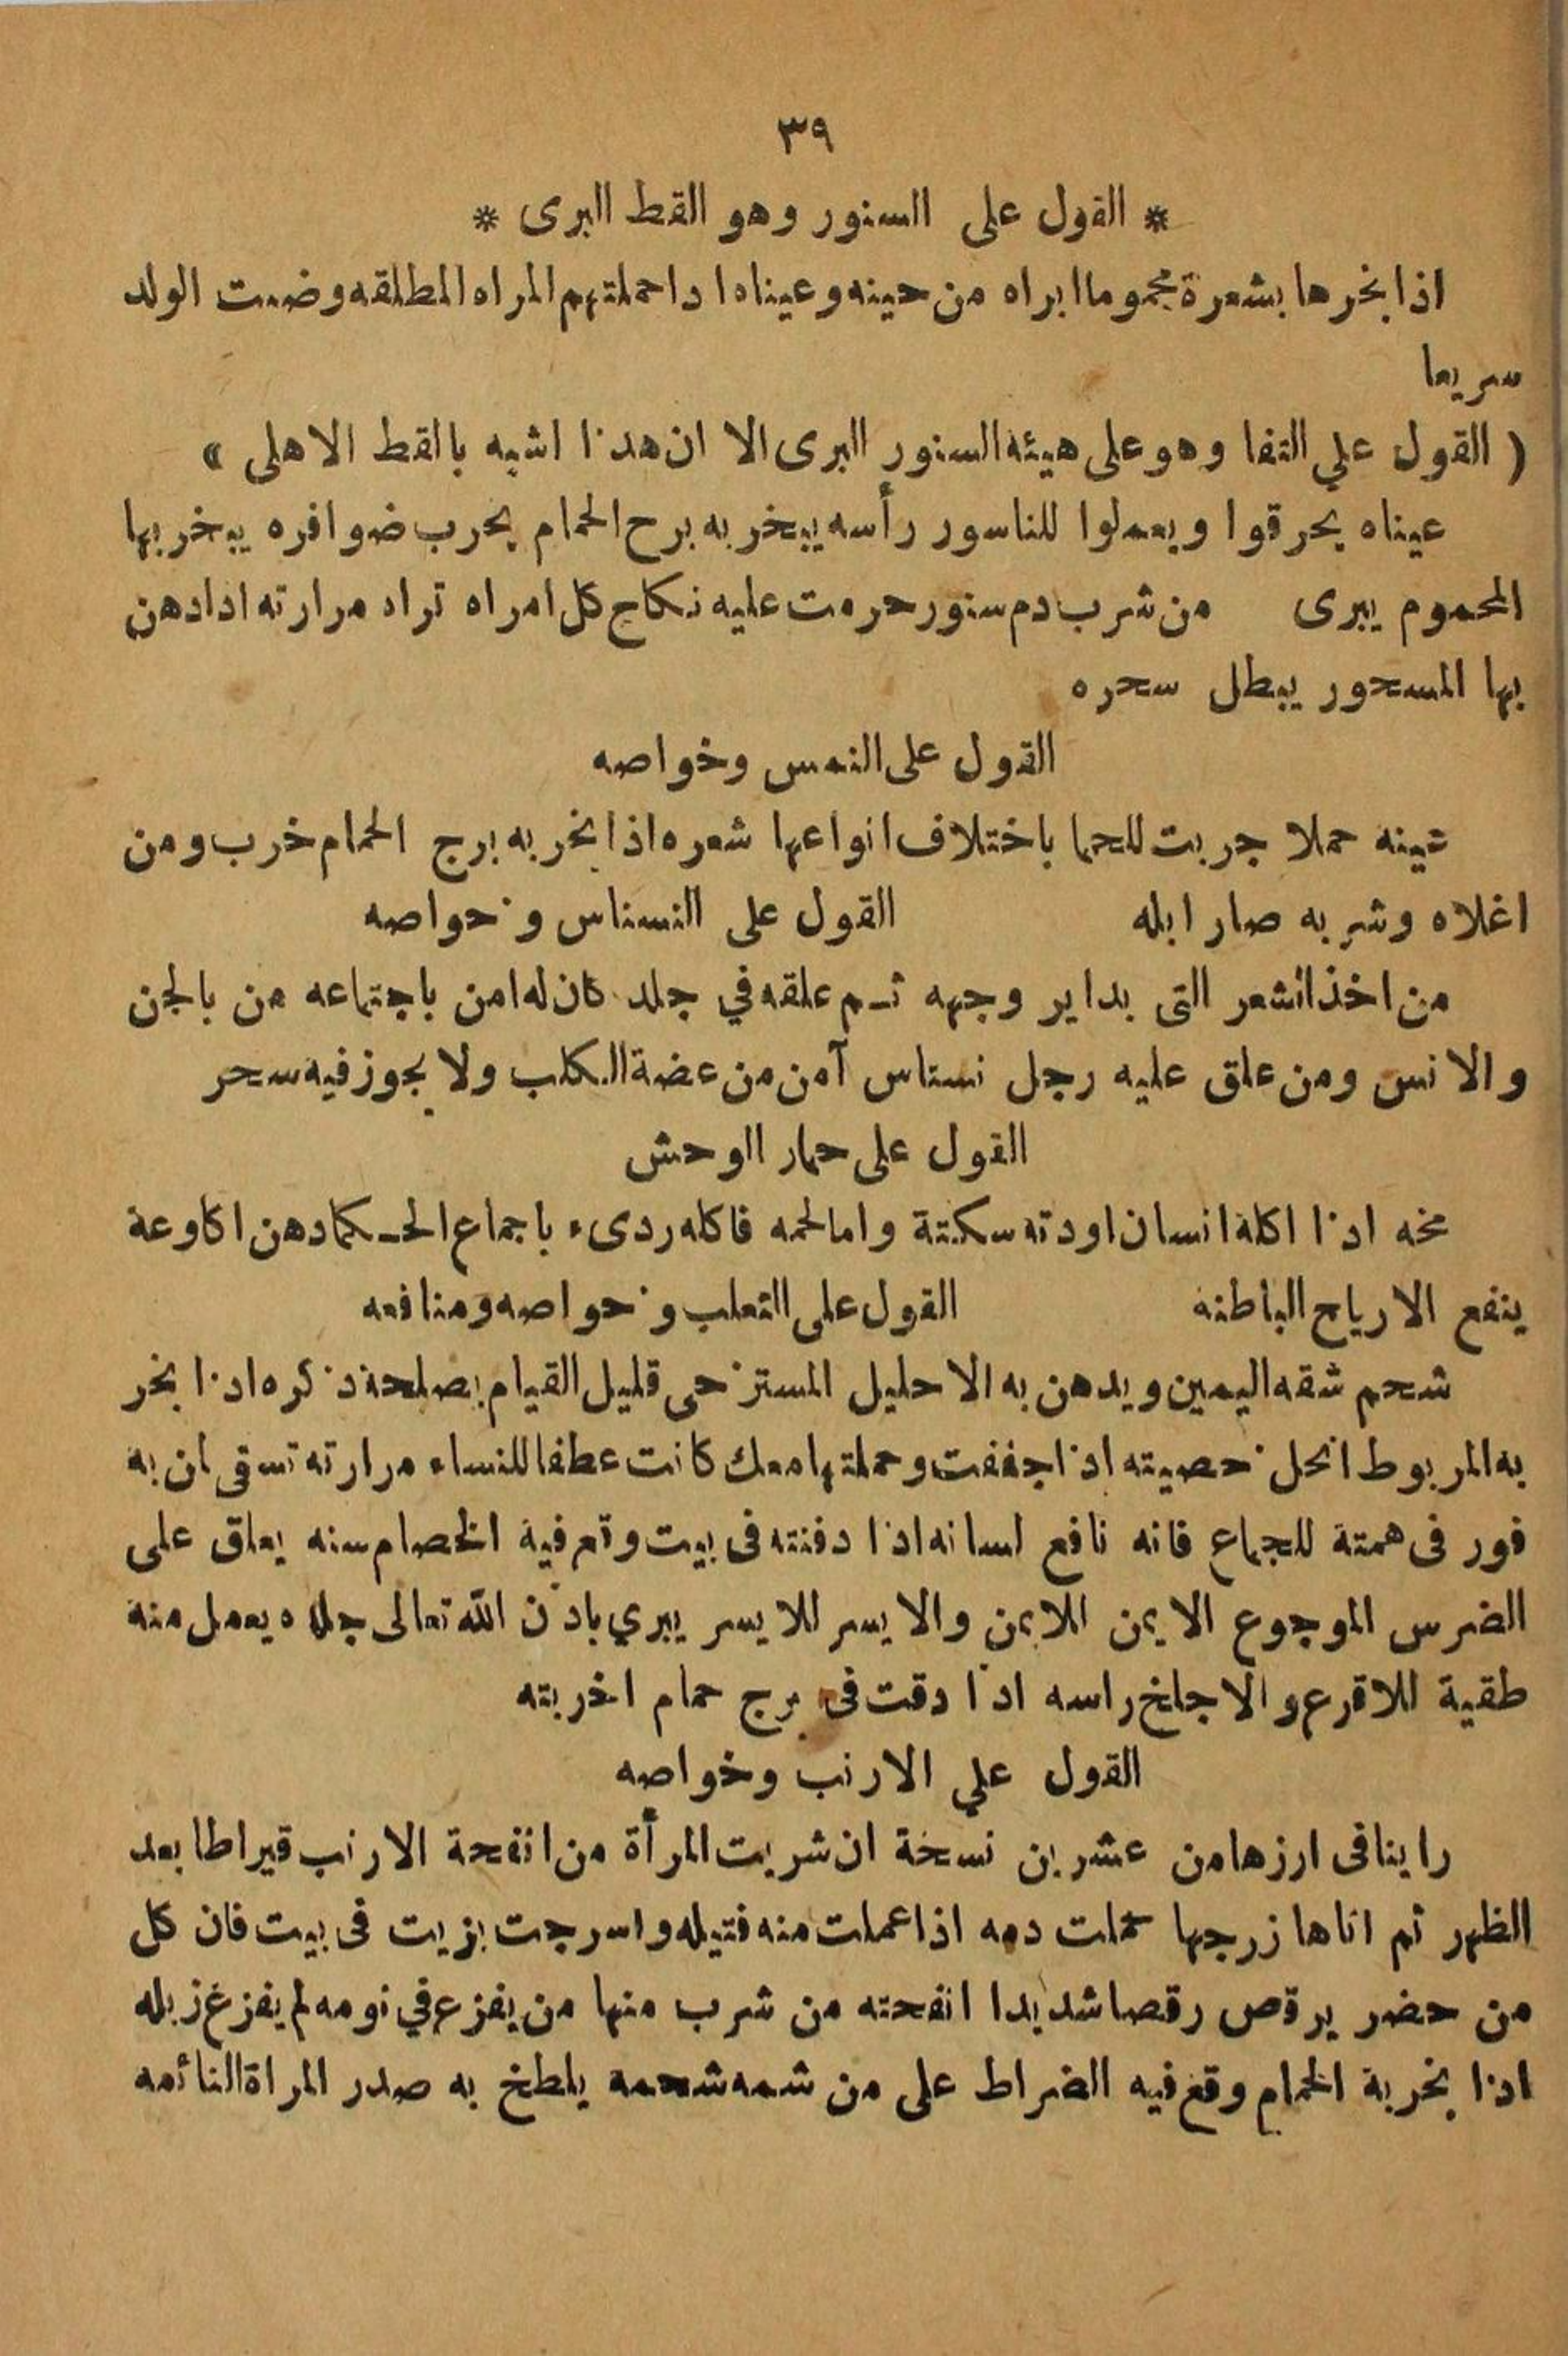 ٣٩
* القول على السنور وهو القط البرى *
اذا بخرها بشعرة محموما ابراه من حينه وعيناه ا داحملتهم المراه المطلقه وضعت الولد
سريعا
( القول علي التفا وهو على هيئة السنور البرى الا ان هذا اشبه بالقط الاهلى )
عيناه يحرقوا ويعملوا للناسور رأسه يبخر به برح الحمام يخرب ضوافره يبخر بها
المحموم يبرى من شرب دم سنور حرمت عليه نكاح كل امراه تراد مرارته ادادهن
بها المسحور يبطل سحره
القول على النمس وخواصه
عينه حملا جربت للحما باختلاف انواعها شعره اذا بخر به برج الحمام خرب ومن
اغلاه وشربه صار ابله القول على النسناس وخواصه
من اخذ الشعر التى بداير وجهه ثم علقه في جلد كان له امن باجتماعه من بالجن
والانس ومن علق عليه رجل نسناس آمن من عضة الكلب ولا يجوز فيه سحر
القول على حمار الوحش
مخه اذا اكله انسان اودته سكتة واما لحمه فاكله ردىء باجماع الحكما دهن اكاوعة
ينفع الارياح الباطنه القول على الثعلب وخواصه ومنافعه
شحم شقه اليمين ويدهن به الاحليل المسترخى قليل القيام بصلحة ذكره اذا بخر
به المربوط انحل خصيته اذا جففت وحملتها معك كانت عطفا للنساء مرارته تسقى لمن به
فور فى همتة للجماع فانه نافع لسانه اذا دفنته فى بيت وقع فيه الخصام سنه يعلق على
الضرس الموجوع الايمن الايمن والايسر للايسر يبري باذن الله تعالى جلده يعمل منه
طقية للاقرع والاجلخ راسه اذا دقت فى برج حمام اخربته
القول علي الارنب وخواصه
راينا فى ارزها من عشرين نسخة ان شربت المرأة من انفحة الارنب قيراطا بعد
الظهر ثم اتاها زرجها حملت دمه اذا عملت منه فتيله واسرجت بزيت فى بيت فان كل
من حضر يرقص رقصا شديدا انفحته من شرب منها من يفزع في نومه لم يفزغ زبله
اذا بخر بة الحمام وقع فيه الضراط على من شمه شحمه يلطخ به صدر المراة النائمه